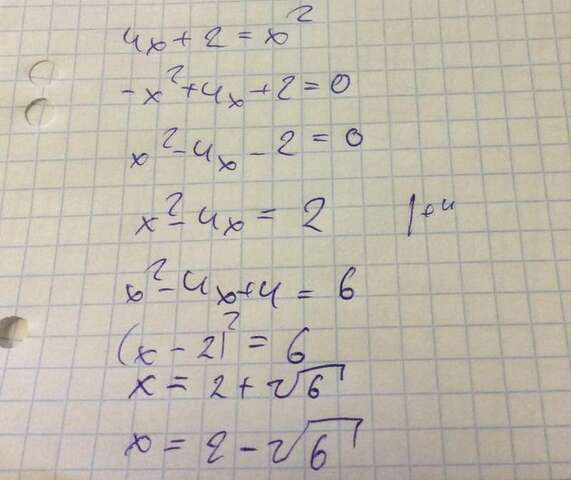 4x + 2 = x²
-x² + 4x + 2 = 0
x² - 4x - 2 = 0
x² - 4x = 2 |+4
x² - 4x + 4 = 6
(x - 2)² = 6
x = 2 + √6
x = 2 - √6